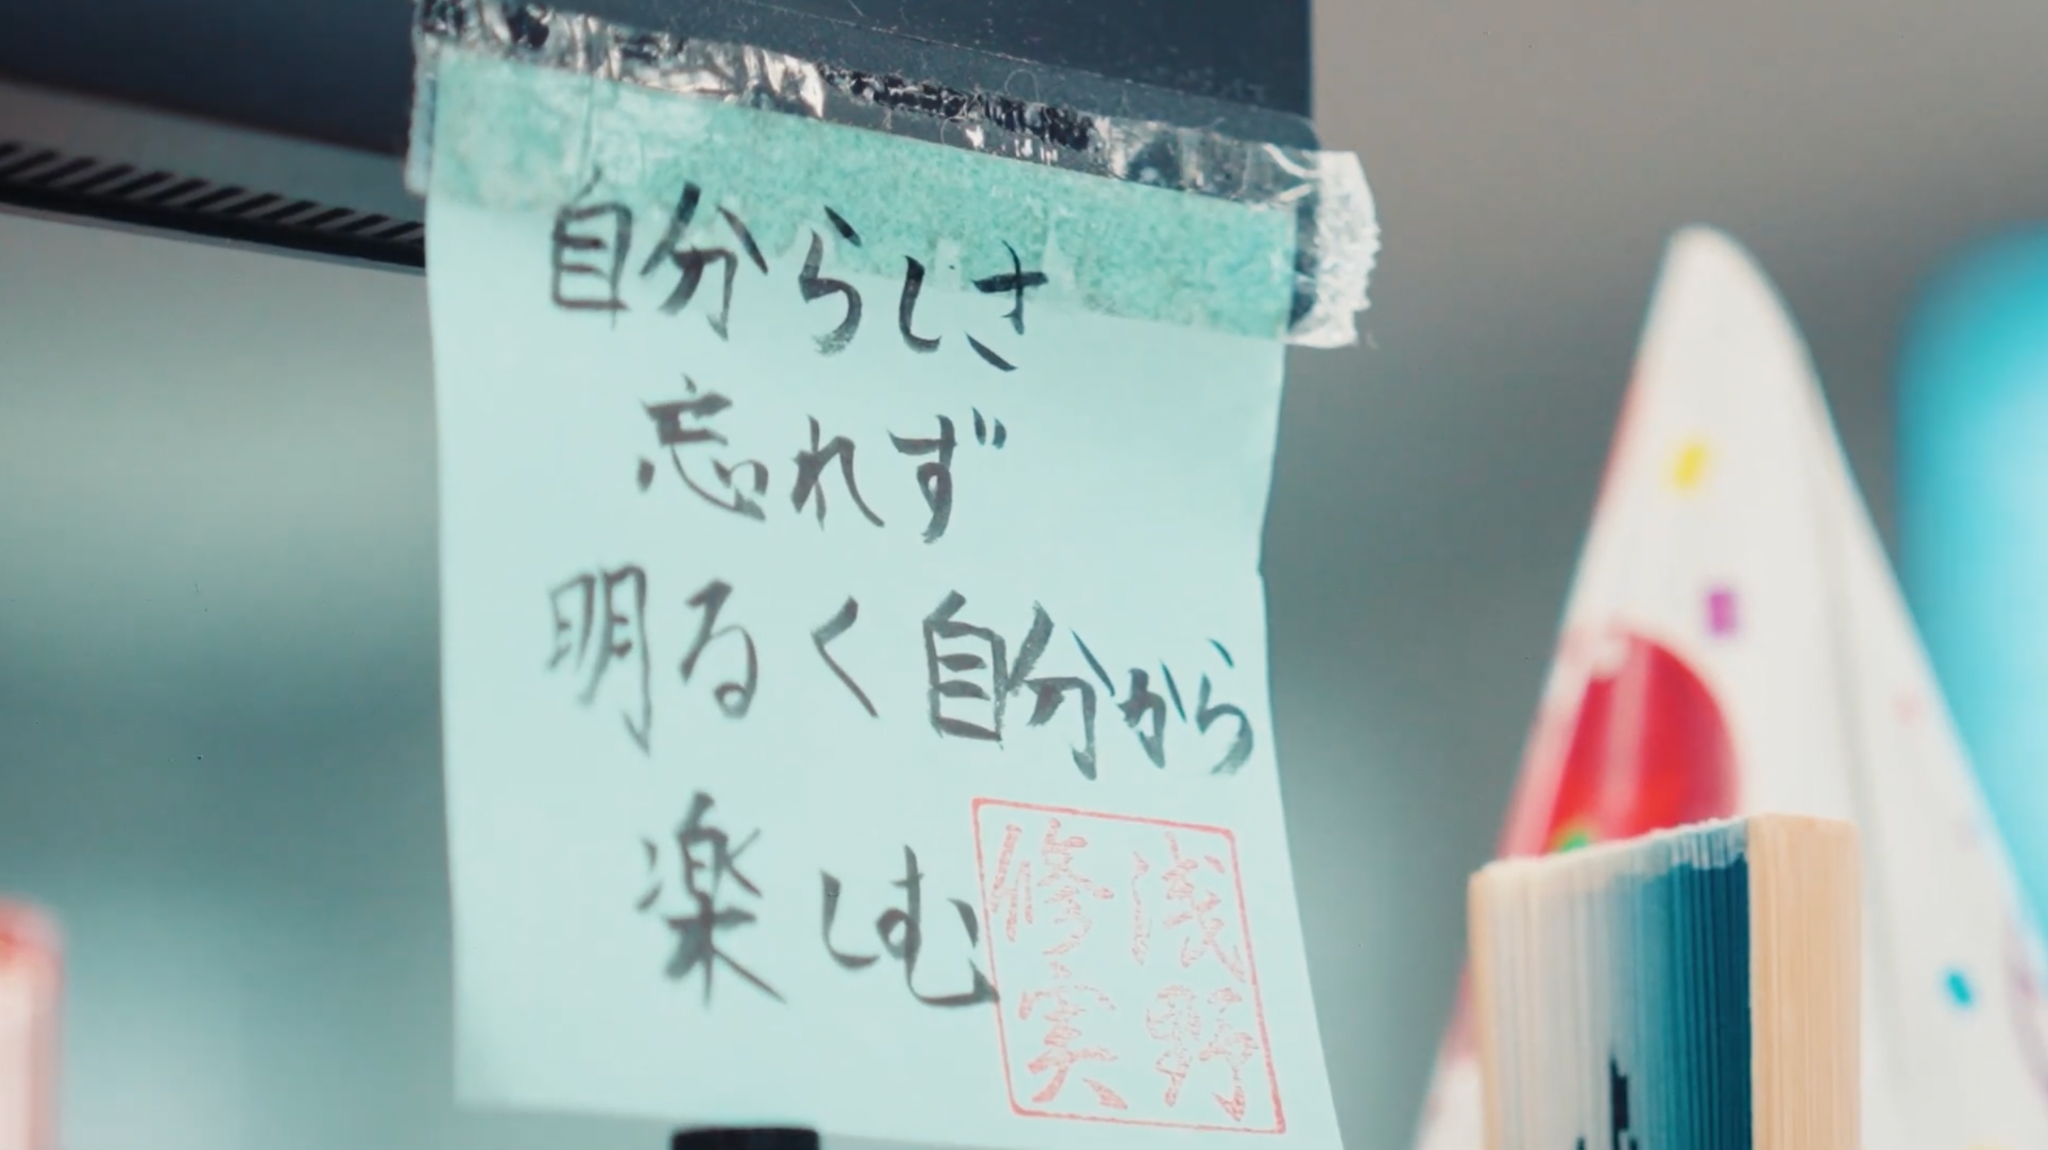 自分らしさ
忘れず
明るく自分から
楽しむ
浅野
修実